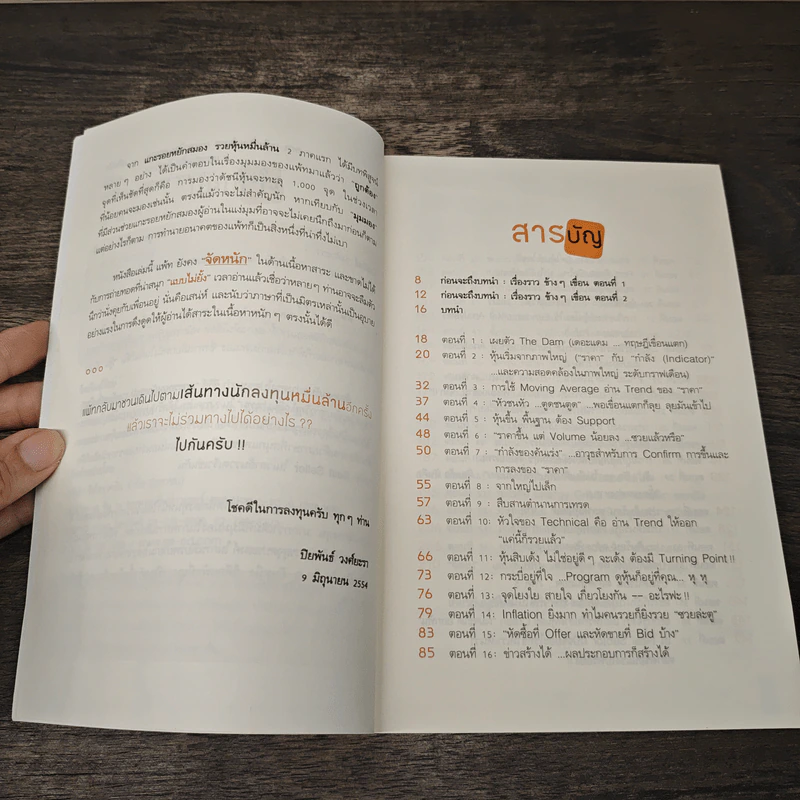 จาก แกะรอยหยักสมอง รวยหุ้นหมื่นล้าน 2 ภาคแรก ได้มีบทพิสูจน์
หลายๆ อย่าง ได้เป็นคำตอบในเรื่องมุมมองของแพ้ทมาแล้วว่า "ถูกต้อง"
จุดที่เห็นชัดที่สุดก็คือ การมองว่าดัชนีหุ้นจะทะลุ 1,000 จุด ในช่วงเวลา
ที่น้อยคนจะมองเช่นนั้น ตรงนี้แม้ว่าจะไม่สำคัญนัก หากเทียบกับ "มุมมอง"
ที่มีส่วนช่วยแกะรอยหยักสมองผู้อ่านในแง่มุมที่อาจจะไม่เคยนึกถึงมาก่อนก็ตาม
แต่อย่างไรก็ตาม การทำนายอนาคตของแพ้ทก็เป็นสิ่งหนึ่งที่น่าทึ่งไม่เบา
หนังสือเล่มนี้ แพ้ท ยังคง "จัดหนัก" ในด้านเนื้อหาสาระ และขาดไม่ได้
กับการถ่ายทอดที่น่าสนุก "แบบไม่ยั้ง" เวลาอ่านแล้วเชื่อว่าหลายๆ ท่านอาจจะลืมตัว
นึกว่านั่งคุยกับเพื่อนอยู่ นั่นคือเสน่ห์ และนับว่าภาษาที่เป็นมิตรเหล่านั้นเป็นอุบาย
อย่างแรงในการดึงดูดให้ผู้อ่านได้สาระในเนื้อหาหนักๆ ตรงนั้นได้ดี
แพ้ทกลับมาชวนเดินไปตามเส้นทางนักลงทุนหมื่นล้านอีกครั้ง
แล้วเราจะไม่ร่วมทางไปได้อย่างไร ??
ไปกันครับ !!
โชคดีในการลงทุนครับ ทุกๆ ท่าน
ปิยพันธ์ วงศ์ยะรา
9 มิถุนายน 2554
สารบัญ
8 ก่อนจะถึงบทนำ : เรื่องราว ข้างๆ เขื่อน ตอนที่ 1
12 ก่อนจะถึงบทนำ : เรื่องราว ข้างๆ เขื่อน ตอนที่ 2
16 บทนำ
18 ตอนที่ 1 : เผยตัว The Dam (เดอะแดม ... ทฤษฎีเขื่อนแตก)
20 ตอนที่ 2 : หุ้นเริ่มจากภาพใหญ่ ("ราคา" กับ "กำลัง (Indicator)"
...และความสอดคล้องในภาพใหญ่ ระดับกราฟเดือน)
32 ตอนที่ 3 : การใช้ Moving Average อ่าน Trend ของ "ราคา"
37 ตอนที่ 4 : "หัวชนหัว ...ตูดชนตูด" ...พอเขื่อนแตกก็ลุย ลุยมันเข้าไป
44 ตอนที่ 5 : หุ้นขึ้น พื้นฐาน ต้อง Support
48 ตอนที่ 6 : "ราคาขึ้น แต่ Volume น้อยลง ...ซวยแล้วหรือ"
50 ตอนที่ 7 : "กำลังของคันเร่ง" ...อาวุธสำหรับการ Confirm การขึ้นและ
การลงของ "ราคา"
55 ตอนที่ 8 : จากใหญ่ไปเล็ก
57 ตอนที่ 9 : สืบสานตำนานการเทรด
63 ตอนที่ 10: หัวใจของ Technical คือ อ่าน Trend ให้ออก
"แค่นี้ก็รวยแล้ว"
66 ตอนที่ 11: หุ้นสิบเด้ง ไม่ใช่อยู่ดีๆ จะเด้ง ต้องมี Turning Point !!
73 ตอนที่ 12: กระบี่อยู่ที่ใจ ...Program ดูหุ้นก็อยู่ที่คุณ... หุ หุ
76 ตอนที่ 13: จุดโยงใย สายใจ เกี่ยวโยงกัน -- อะไรฟะ !!
79 ตอนที่ 14: Inflation ยิ่งมาก ทำไมคนรวยก็ยิ่งรวย "ซวยล่ะตู"
83 ตอนที่ 15: "หัดซื้อที่ Offer และหัดขายที่ Bid บ้าง"
85 ตอนที่ 16: ข่าวสร้างได้ ...ผลประกอบการก็สร้างได้